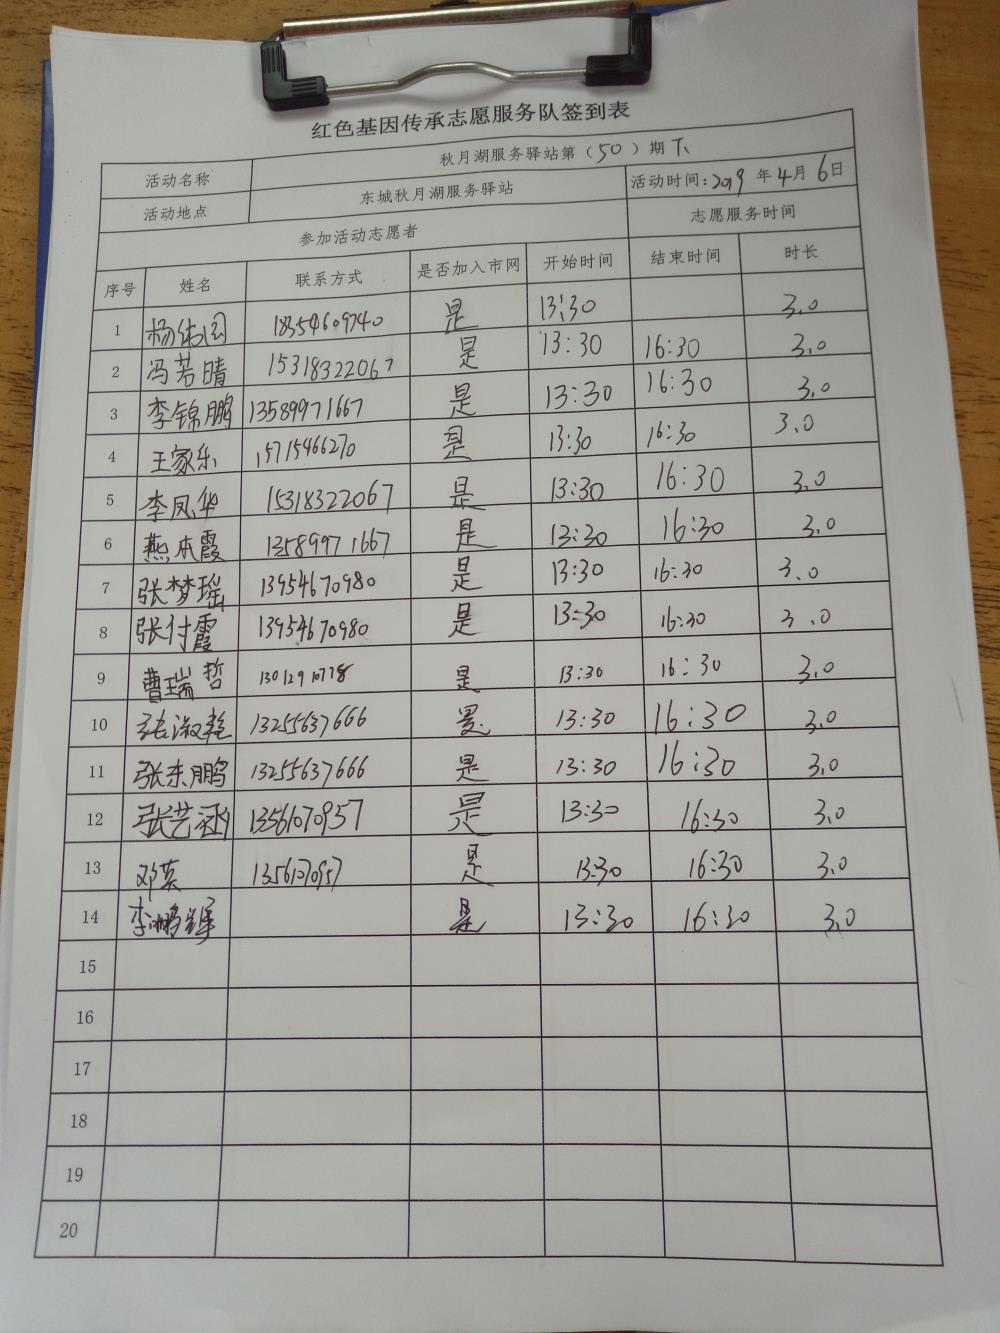 红色基因传承志愿服务队签到表
活动名称 秋月湖服务驿站第（50）期下
活动地点 东城秋月湖服务驿站 活动时间：2019年4月6日
参加活动志愿者 志愿服务时间
序号 姓名 联系方式 是否加入市网 开始时间 结束时间 时长
1 杨伟国 18354609740 是 13:30 3.0
2 冯若晴 15318322067 是 13:30 16:30 3.0
3 李锦鹏 13589971667 是 13:30 16:30 3.0
4 王家乐 15715466270 是 13:30 16:30 3.0
5 李凤华 15318322067 是 13:30 16:30 3.0
6 燕本霞 13589971667 是 13:30 16:30 3.0
7 张梦瑶 13954670980 是 13:30 16:30 3.0
8 张付霞 13954670980 是 13:30 16:30 3.0
9 曹瑞哲 是 13:30 16:30 3.0
10 张淑乾 13255637666 是 13:30 16:30 3.0
11 张东鹏 13255637666 是 13:30 16:30 3.0
12 张艺涵 13561070957 是 13:30 16:30 3.0
13 邓英 13561070957 是 13:30 16:30 3.0
14 李鹏辉 是 13:30 16:30 3.0
15
16
17
18
19
20